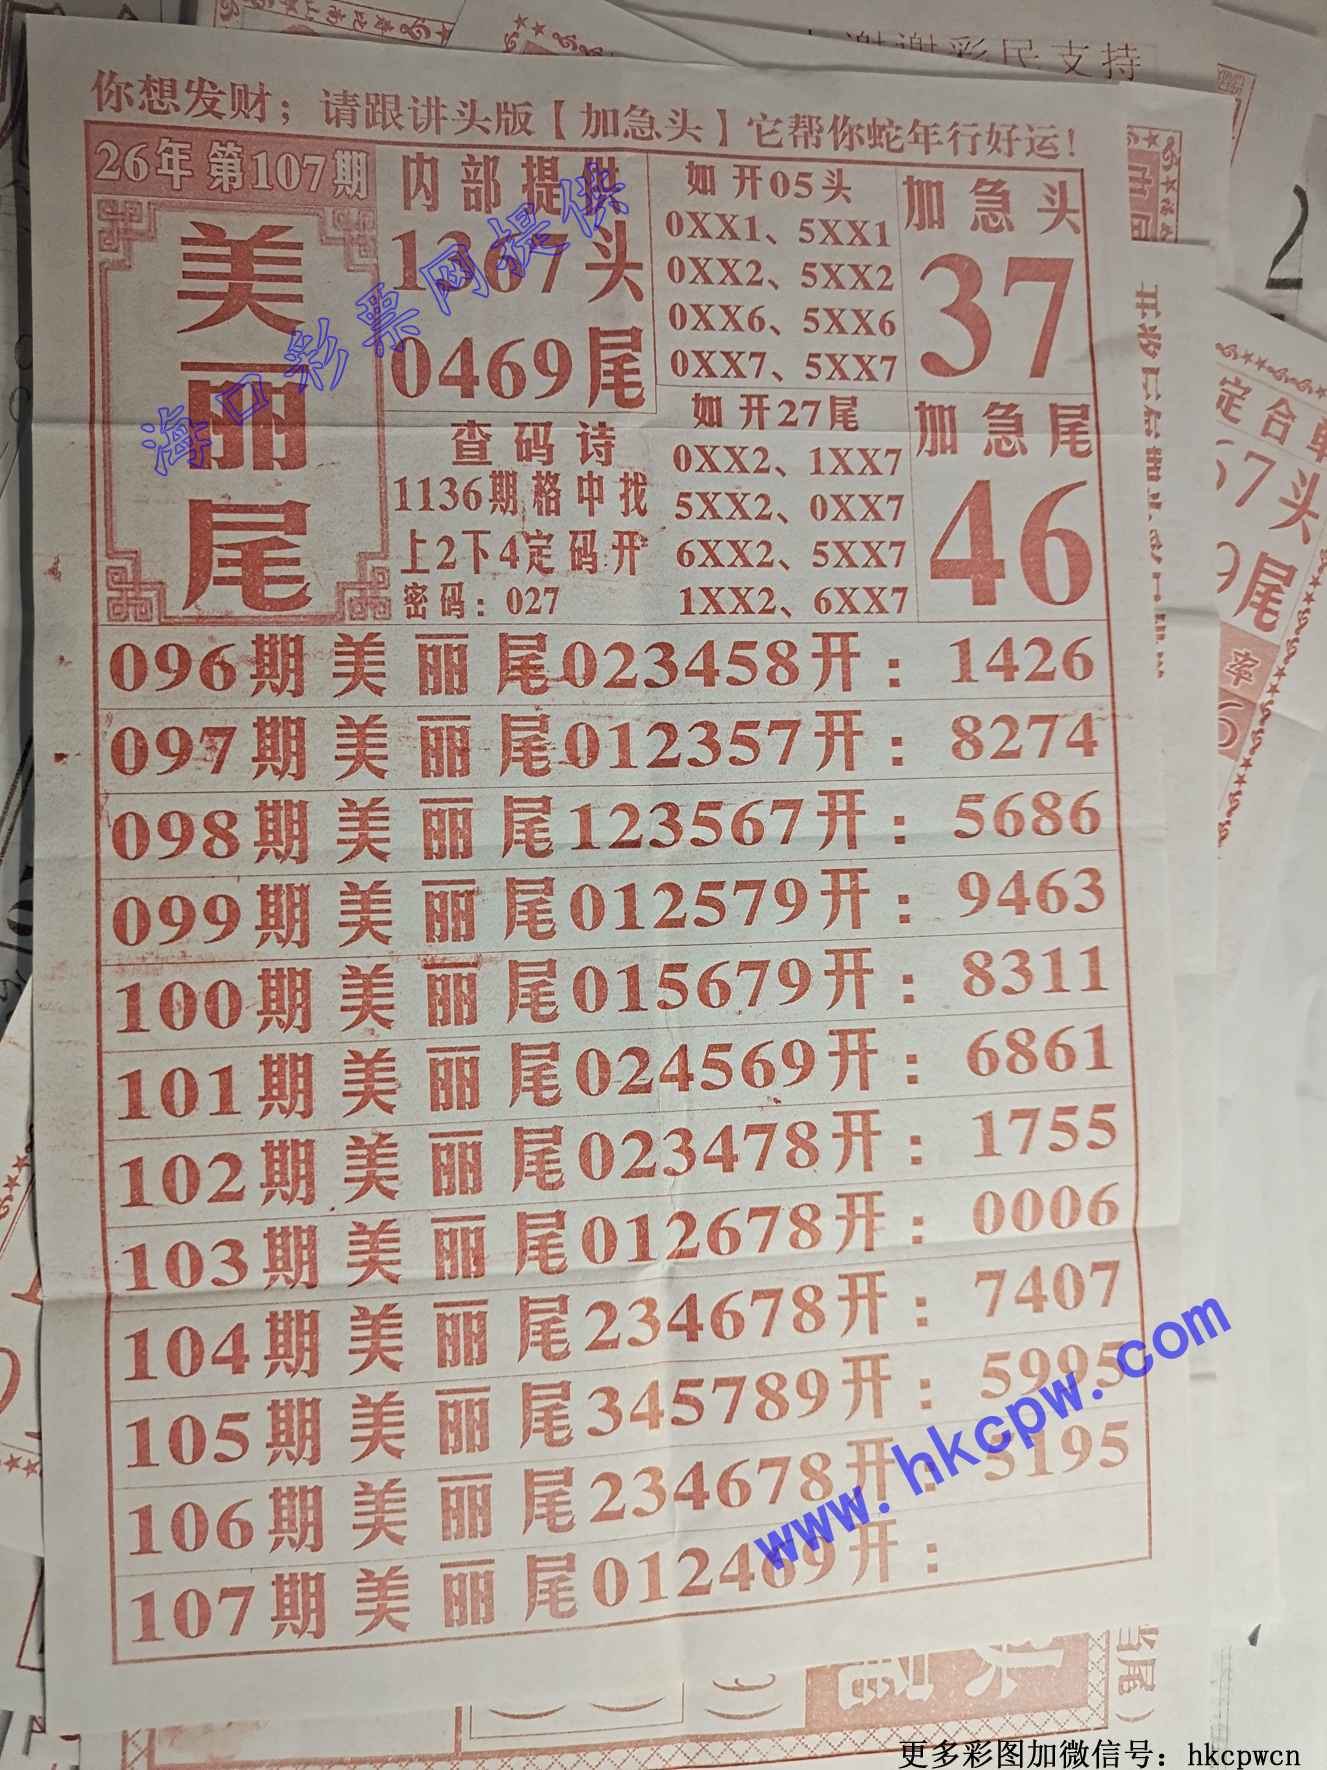 谢谢彩民支持
你想发财；请跟讲头版【加急头】它帮你蛇年行好运！
26年 第107期
美丽尾
内部提供
1367头
0469尾
查码诗
1136期格中找
上2下4定码开
密码：027
如开05头
0XX1、5XX1
0XX2、5XX2
0XX6、5XX6
0XX7、5XX7
如开27尾
0XX2、1XX7
5XX2、0XX7
6XX2、5XX7
1XX2、6XX7
加急头
37
加急尾
46
096期美丽尾023458开：1426
097期美丽尾012357开：8274
098期美丽尾123567开：5686
099期美丽尾012579开：9463
100期美丽尾015679开：8311
101期美丽尾024569开：6861
102期美丽尾023478开：1755
103期美丽尾012678开：0006
104期美丽尾234678开：7407
105期美丽尾345789开：5995
106期美丽尾234678开：5195
107期美丽尾012469开：
海口彩票网提供
www.hkcpw.com
定合单
67头
9尾
率
2
当尾）
头尾
更多彩图加微信号：hkcpwcn